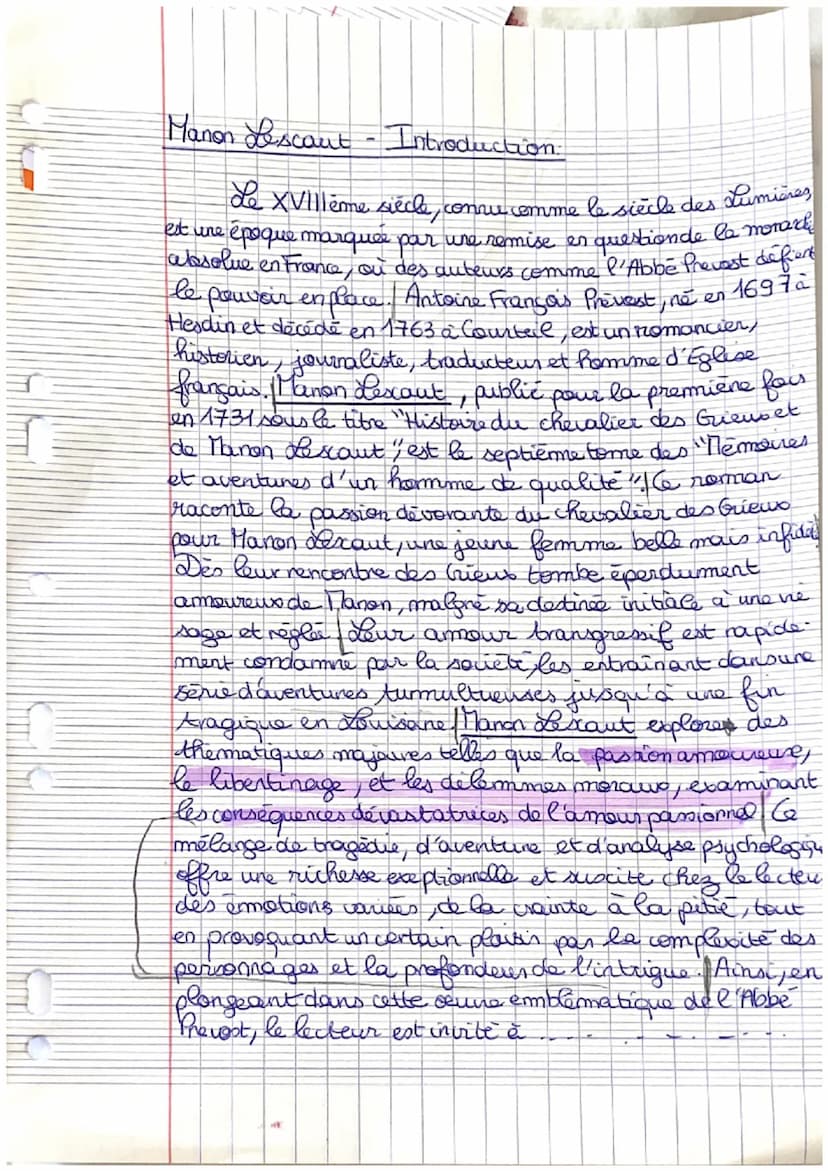 Manon Lescaut - Introduction.
Le XVIIIème siècle, connu comme le siècle des Lumières,
est une époque marquée par une remise en question de la monarch
absolue en France, où des auteurs comme l'Abbé Prevost défient
le pouvoir en place. / Antoine François Prévost, né en 1697 à
Hesdin et décédé en 1763 à Courteil, est un romancier,
historien, journaliste, traducteur et homme d'Eglise
français. / Manon Lescaut, publié pour la première fois
en 1731 sous le titre "Histoire du chevalier des Grieux et
de Manon Lescaut", est le septième tome des "Mémoires
et aventures d'un homme de qualité". / Ce roman
raconte la passion dévorante du chevalier des Grieux
pour Manon Lescaut, une jeune femme belle mais infidèle
Dès leur rencontre des Grieux tombe éperdument
amoureux de Manon, malgré sa destinée initiale à une vie
sage et réglée / Leur amour transgressif est rapide-
ment condamné par la société, les entraînant dans une
série d'aventures tumultueuses jusqu'à une fin
tragique en Louisiane / Manon Lescaut explore des
thématiques majeures telles que la passion amoureuse,
le libertinage, et les dilemmes moraux, examinant
les conséquences dévastatrices de l'amour passionnel / Ce
mélange de tragédie, d'aventure et d'analyse psychologiqu
offre une richesse exeptionnelle et suscite chez le lecteu
des émotions variées, de la crainte à la pitié, tout
en provoquant un certain plaisir par la complexité des
personnages et la profondeur de l'intrigue. / Ainsi, en
plongeant dans cette œuvre emblématique de l'Abbé
Prevost, le lecteur est invité à .... - . - - . - . - .